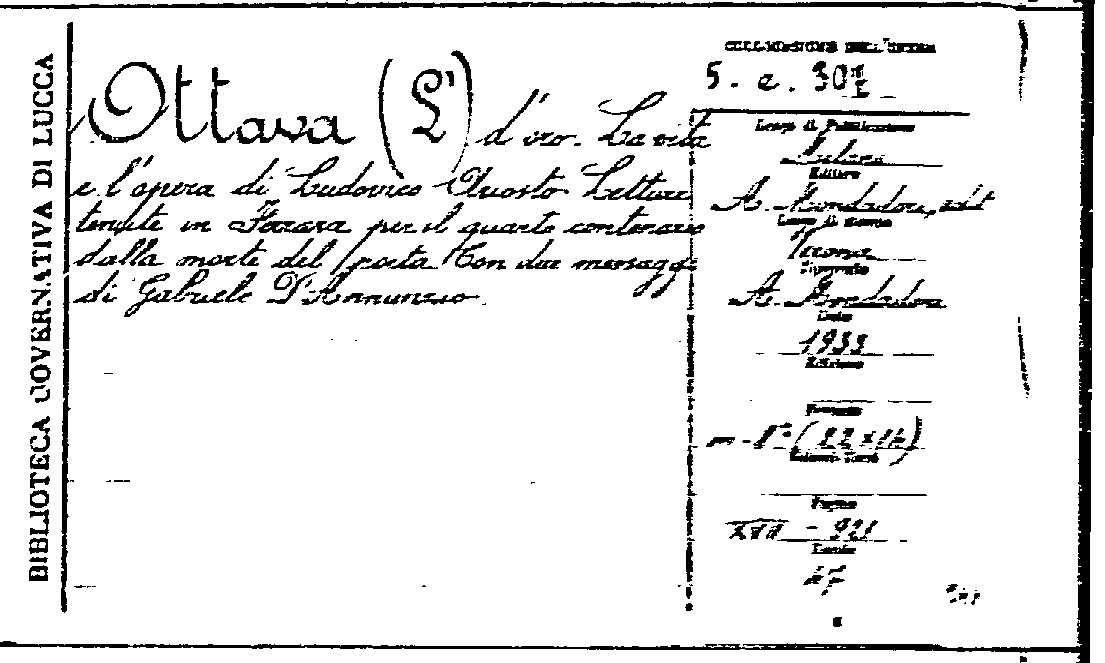 BIBLIOTECA GOVERNATIVA DI LUCCA
Ottava (L') d'oro. La vita
e l'opera di Ludovico Ariosto Letture
tenute in Ferrara per il quarto centenario
dalla morte del poeta Con due messaggi
di Gabriele D'Annunzio
COLLOCAZIONE DELL'OPERA
5. e. 307
Luogo di Pubblicazione
Milano
Editore
A. Mondadori, edit
Luogo di stampa
Verona
Tipografo
A. Mondadori
Data
1933
Edizione
Formato
in-8° (22x16)
Volumi
Pagine
XVII - 921
Tavole
47